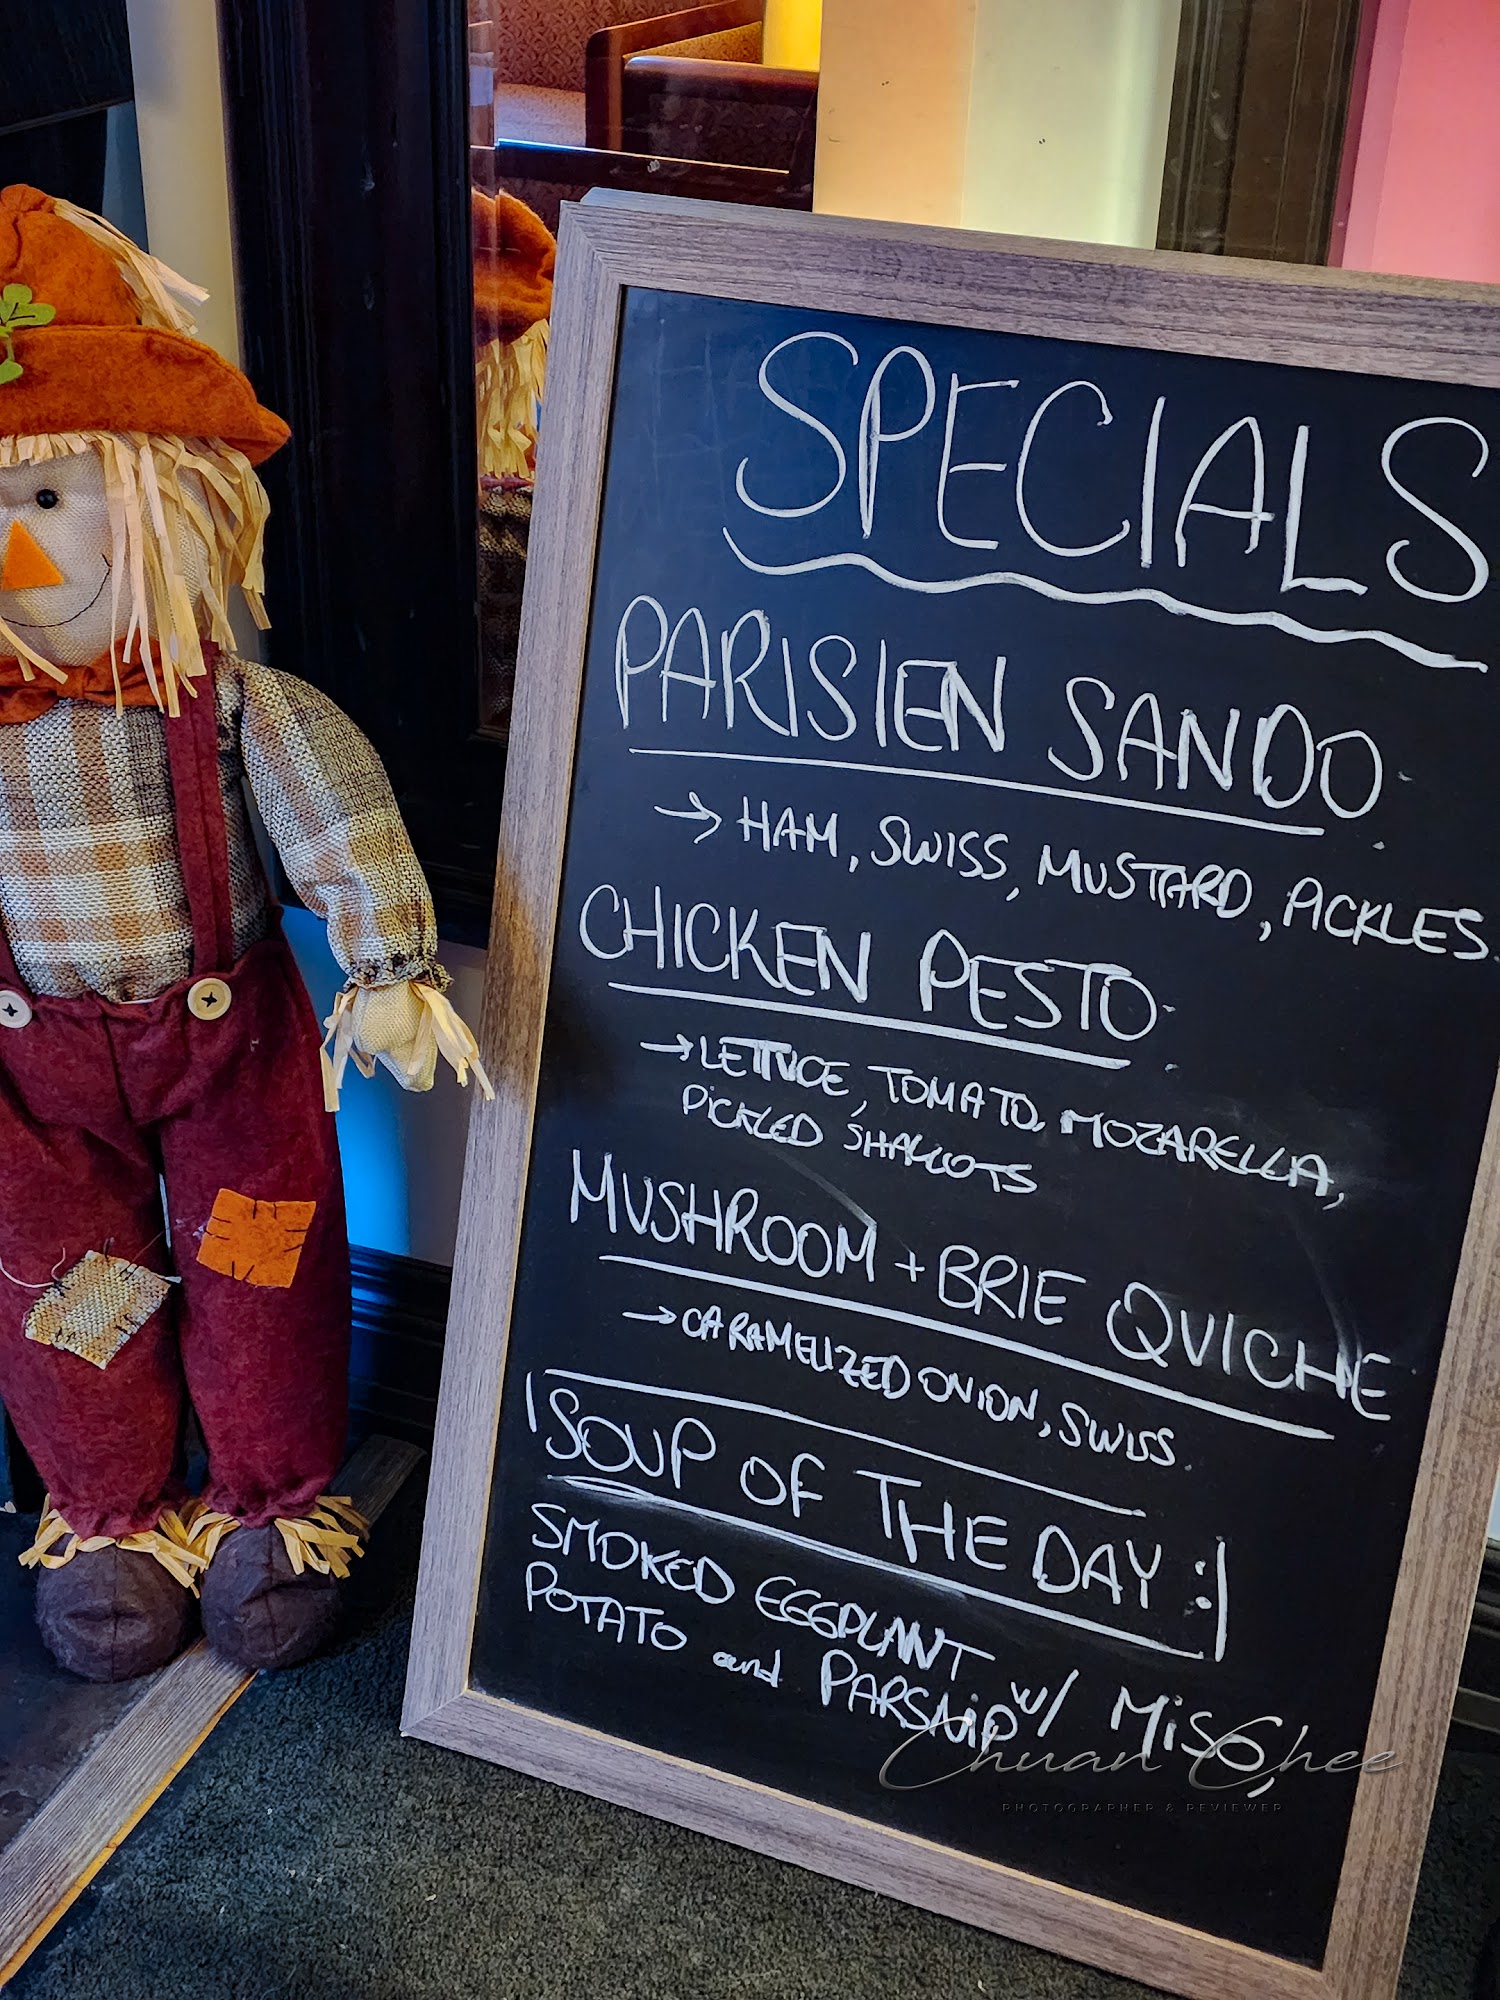 SPECIALS
PARISIEN SANDO
→ HAM, SWISS, MUSTARD, PICKLES.
CHICKEN PESTO
→ LETTUCE, TOMATO, MOZARELLA,
PICKLED SHALLOTS
MUSHROOM + BRIE QUICHE
→ CARAMELIZED ONION, SWISS
SOUP OF THE DAY :
SMOKED EGGPLANT w/ MiSO,
POTATO and PARSNiP
Chuan Chee
PHOTOGRAPHER & REVIEWER